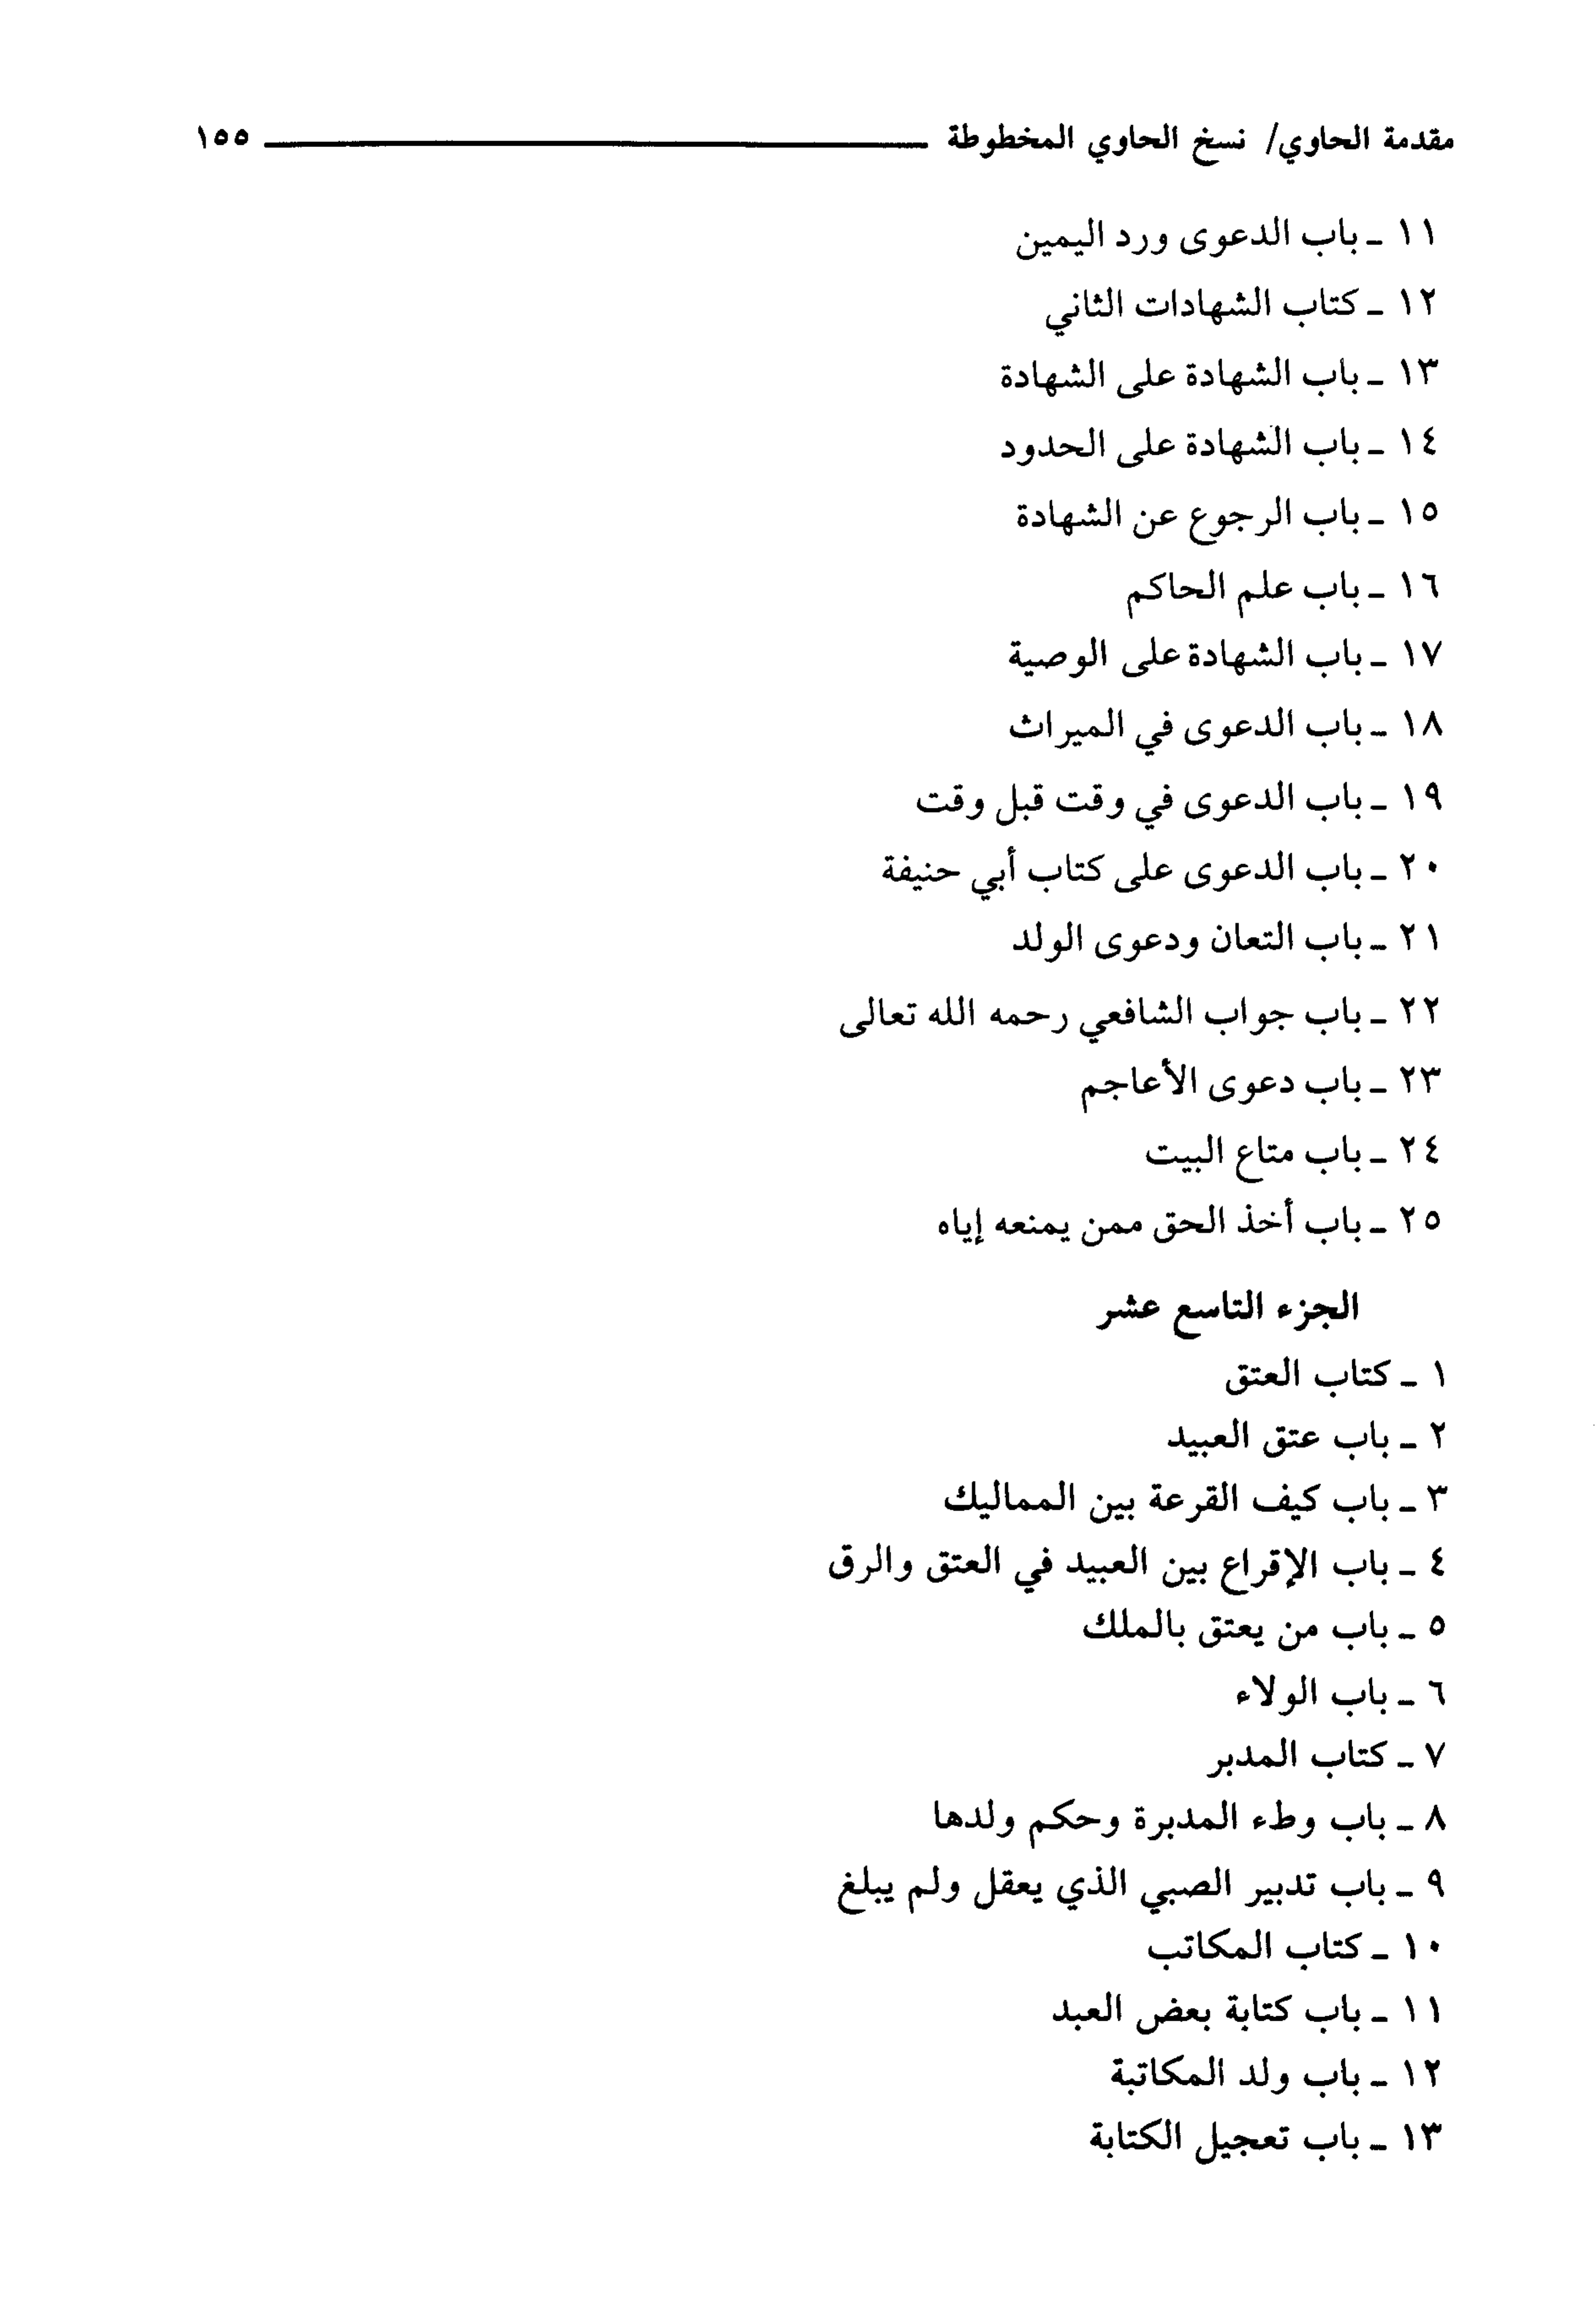 مقدمة الحاوي/ نسخ الحاوي المخطوطة ١٥٥
١١ - باب الدعوى ورد اليمين
١٢ - كتاب الشهادات الثاني
١٣ - باب الشهادة على الشهادة
١٤ - باب الشهادة على الحدود
١٥ - باب الرجوع عن الشهادة
١٦ - باب علم الحاكم
١٧ - باب الشهادة على الوصية
١٨ - باب الدعوى في الميراث
١٩ - باب الدعوى في وقت قبل وقت
٢٠ - باب الدعوى على كتاب أبي حنيفة
٢١ - باب التعان ودعوى الولد
٢٢ - باب جواب الشافعي رحمه الله تعالى
٢٣ - باب دعوى الأعاجم
٢٤ - باب متاع البيت
٢٥ - باب أخذ الحق ممن يمنعه إياه
الجزء التاسع عشر
١ - كتاب العتق
٢ - باب عتق العبيد
٣ - باب كيف القرعة بين المماليك
٤ - باب الإقراع بين العبيد في العتق والرق
٥ - باب من يعتق بالملك
٦ - باب الولاء
٧ - كتاب المدبر
٨ - باب وطء المدبرة وحكم ولدها
٩ - باب تدبير الصبي الذي يعقل ولم يبلغ
١٠ - كتاب المكاتب
١١ - باب كتابة بعض العبد
١٢ - باب ولد المكاتبة
١٣ - باب تعجيل الكتابة